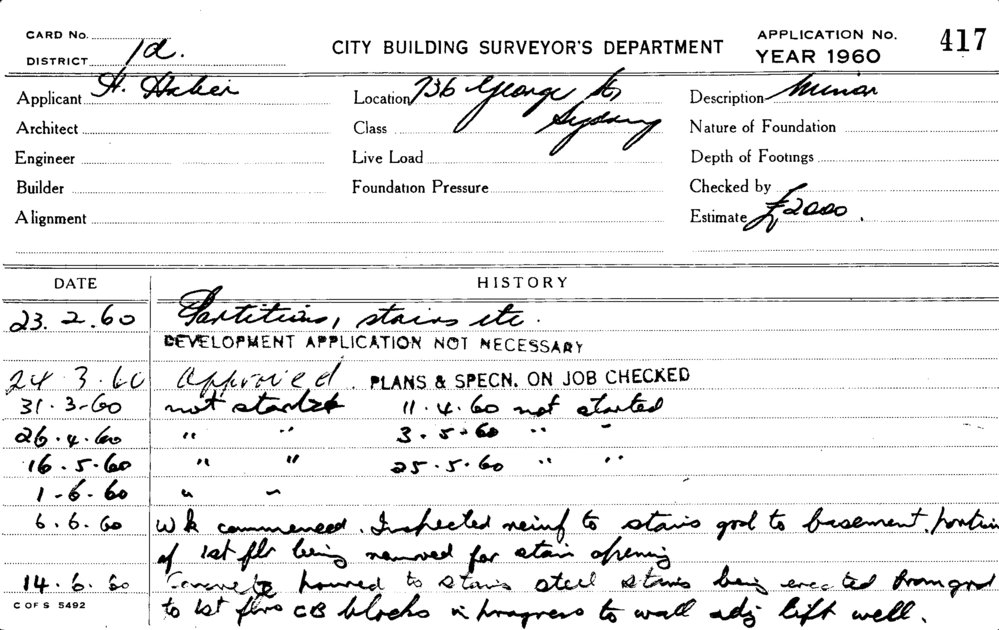 CARD No.
DISTRICT 1d.
CITY BUILDING SURVEYOR'S DEPARTMENT
APPLICATION No. 417
YEAR 1960
Applicant H.
Location 736 George St Sydney
Description Minor
Architect
Class
Nature of Foundation
Engineer
Live Load
Depth of Footings
Builder
Foundation Pressure
Checked by
Alignment
Estimate £2000.
DATE HISTORY
23.2.60 Partitions, stairs etc.
DEVELOPMENT APPLICATION NOT NECESSARY
24.3.60 Approved. PLANS & SPECN. ON JOB CHECKED
31.3.60 not started 11.4.60 not started
26.4.60 " " 3.5.60 " "
16.5.60 " " 25.5.60 " "
1.6.60 " "
6.6.60 Wk commenced. Inspected reinf to stairs grd to basement. portion
of 1st flr being removed for stair opening
14.6.60 Concrete poured to stairs steel stairs being erected from grd
to 1st flrs CB blocks in progress to wall adj lift well.
C OF S 5492